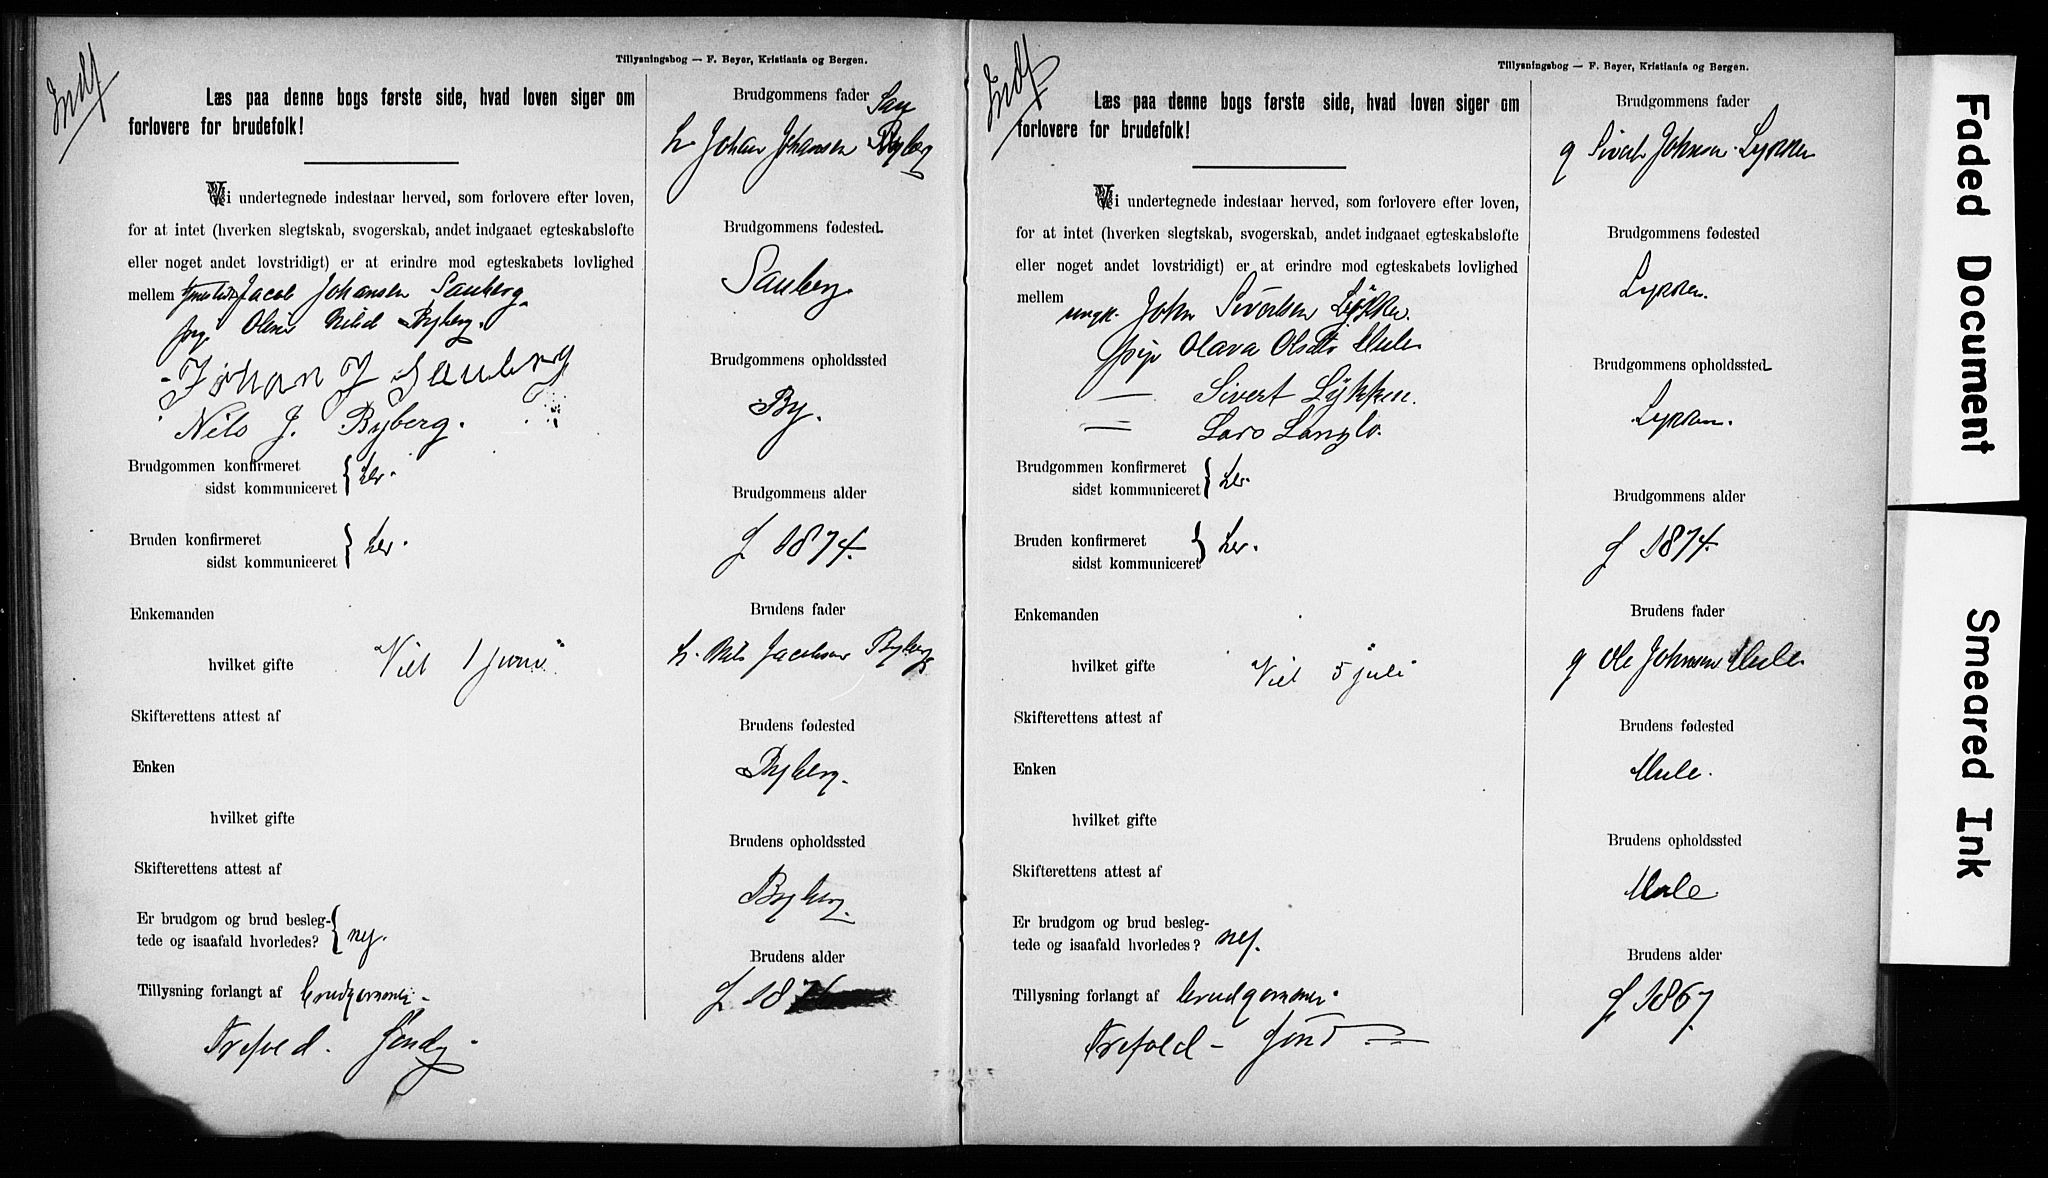 Indf
Tillysningsbog — F. Beyer, Kristiania og Bergen.
Læs paa denne bogs første side, hvad loven siger om
forlovere for brudefolk!
Vi undertegnede indestaar herved, som forlovere efter loven,
for at intet (hverken slegtskab, svogerskab, andet indgaaet egteskabsløfte
eller noget andet lovstridigt) er at erindre mod egteskabets lovlighed
mellem Jacob Johansen Sauberg
Byberg.
Johan J Sauberg
Nils J. Byberg.
Brudgommen konfirmeret
sidst kommuniceret } her.
Bruden konfirmeret
sidst kommuniceret } her.
Enkemanden
hvilket gifte
Viel 1 juni
Skifterettens attest af
Enken
hvilket gifte
Skifterettens attest af
Er brudgom og brud besleg-
tede og isaafald hvorledes? { nej.
Tillysning forlangt af brudgommen
Trefold.
Brudgommens fader
Sau
Johan Johansen Byberg
Brudgommens fødested
Sauberg.
Brudgommens opholdssted
By.
Brudgommens alder
f 1874.
Brudens fader
Nils Jacobsen Byberg
Brudens fødested
Byberg.
Brudens opholdssted
Byberg.
Brudens alder
f 187
Indf
Tillysningsbog — F. Beyer, Kristiania og Bergen.
Læs paa denne bogs første side, hvad loven siger om
forlovere for brudefolk!
Vi undertegnede indestaar herved, som forlovere efter loven,
for at intet (hverken slegtskab, svogerskab, andet indgaaet egteskabsløfte
eller noget andet lovstridigt) er at erindre mod egteskabets lovlighed
mellem
ungk. John Sivertsen Lykken.
pige Olava Olsdtr Mule
— Sivert Lykken.
— Lars Langlo.
Brudgommen konfirmeret
sidst kommuniceret } her.
Bruden konfirmeret
sidst kommuniceret } her.
Enkemanden
hvilket gifte
Viel 5 juli
Skifterettens attest af
Enken
hvilket gifte
Skifterettens attest af
Er brudgom og brud besleg-
tede og isaafald hvorledes? nej.
Tillysning forlangt af brudgommen
Trefold –
Brudgommens fader
g Sivert Johnsen Lykken
Brudgommens fødested
Lykken.
Brudgommens opholdssted
Lykken.
Brudgommens alder
f 1874.
Brudens fader
g Ole Johnsen Mule
Brudens fødested
Mule.
Brudens opholdssted
Mule
Brudens alder
f 1867.
Faded Document
Smeared Ink